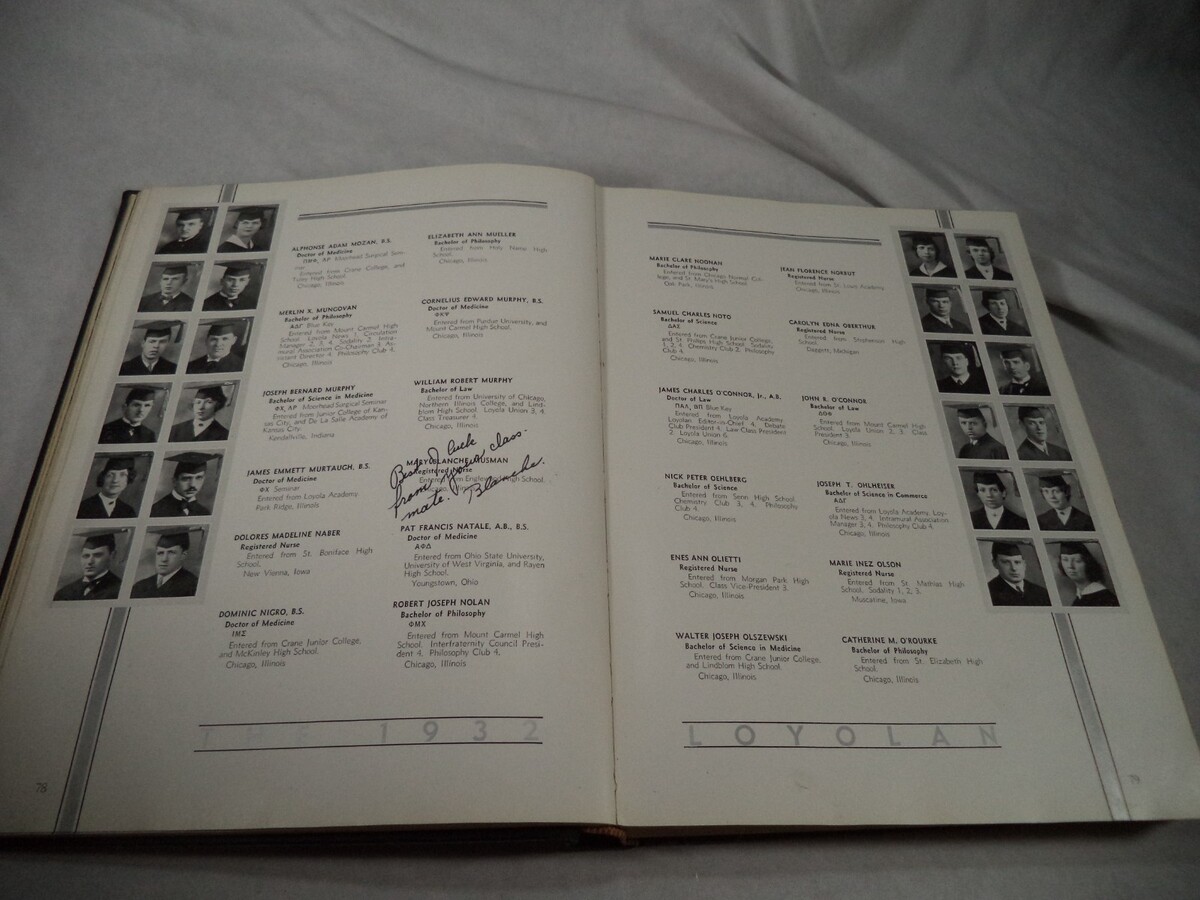 ALPHONSE ADAM MOZAN, B.S.
Doctor of Medicine
Moorhead Surgical Sem-
inar
Entered from Crane College, and
Tuley High School.
Chicago, Illinois
MERLIN X. MUNGOVAN
Bachelor of Philosophy
ΑΔΓ Blue Key
Entered from Mount Carmel High
School. Loyola News 1, Circulation
Manager 2, 3, 4. Sodality 2. Intra-
mural Association Co-Chairman 4, As-
sistant Director 4. Philosophy Club 4.
Chicago, Illinois
JOSEPH BERNARD MURPHY
Bachelor of Science in Medicine
ΦΧ, ΛΡ Moorhead Surgical Seminar
Entered from Junior College of Kan-
sas City, and De La Salle Academy of
Kansas City.
Kendallville, Indiana
JAMES EMMETT MURTAUGH, B.S.
Doctor of Medicine
ΦΧ Seminar
Entered from Loyola Academy.
Park Ridge, Illinois
DOLORES MADELINE NABER
Registered Nurse
Entered from St. Boniface High
School.
New Vienna, Iowa
DOMINIC NIGRO, B.S.
Doctor of Medicine
ΙΜΣ
Entered from Crane Junior College,
and McKinley High School.
Chicago, Illinois
ELIZABETH ANN MUELLER
Bachelor of Philosophy
Entered from Holy Name High
School.
Chicago, Illinois
CORNELIUS EDWARD MURPHY, B.S.
Doctor of Medicine
ΦΚΨ
Entered from Purdue University, and
Mount Carmel High School.
Chicago, Illinois
WILLIAM ROBERT MURPHY
Bachelor of Law
Entered from University of Chicago,
Northern Illinois College, and Lind-
blom High School. Loyola Union 3, 4.
Class Treasurer 4.
Chicago, Illinois
MARY BLANCHE MUSMAN
Registered Nurse
Entered from High School.
Best of luck
from your class-
mate. Blanche.
PAT FRANCIS NATALE, A.B., B.S.
Doctor of Medicine
ΑΦΔ
Entered from Ohio State University,
University of West Virginia, and Rayen
High School.
Youngstown, Ohio
ROBERT JOSEPH NOLAN
Bachelor of Philosophy
ΦΜΧ
Entered from Mount Carmel High
School. Interfraternity Council Presi-
dent 4. Philosophy Club 4.
Chicago, Illinois
THE 1932
78
MARIE CLARE NOONAN
Bachelor of Philosophy
Entered from Chicago Normal Col-
lege, and St. Mary's High School.
Oak Park, Illinois
SAMUEL CHARLES NOTO
Bachelor of Science
ΔΑΣ
Entered from Crane Junior College,
and St. Philips High School. Sodality
1, 2, 4. Chemistry Club 2. Philosophy
Club 4.
Chicago, Illinois
JAMES CHARLES O'CONNOR, Jr., A.B.
Doctor of Law
ΠΑΛ, ΒΠ Blue Key
Entered from Loyola Academy.
Loyolan Editor-in-Chief 4. Debate
Club President 4. Law Class President
2. Loyola Union 6.
Chicago, Illinois
NICK PETER OEHLBERG
Bachelor of Science
Entered from Senn High School.
Chemistry Club 3, 4. Philosophy
Club 4.
Chicago, Illinois
ENES ANN OLIETTI
Registered Nurse
Entered from Morgan Park High
School. Class Vice-President 3.
Chicago, Illinois
WALTER JOSEPH OLSZEWSKI
Bachelor of Science in Medicine
Entered from Crane Junior College,
and Lindblom High School.
Chicago, Illinois
JEAN FLORENCE NORKUT
Registered Nurse
Entered from St. Louis Academy.
Chicago, Illinois
CAROLYN EDNA OBERTHUR
Registered Nurse
Entered from Stephenson High
School.
Daggett, Michigan
JOHN R. O'CONNOR
Bachelor of Law
ΔΘΦ
Entered from Mount Carmel High
School. Loyola Union 2, 3. Class
President 3.
Chicago, Illinois
JOSEPH T. OHLHEISER
Bachelor of Science in Commerce
ΑΔΓ
Entered from Loyola Academy. Loy-
ola News 3, 4. Intramural Association
Manager 3, 4. Philosophy Club 4.
Chicago, Illinois
MARIE INEZ OLSON
Registered Nurse
Entered from St. Mathias High
School. Sodality 1, 2, 3.
Muscatine, Iowa
CATHERINE M. O'ROURKE
Bachelor of Philosophy
Entered from St. Elizabeth High
School.
Chicago, Illinois
LOYOLAN
79